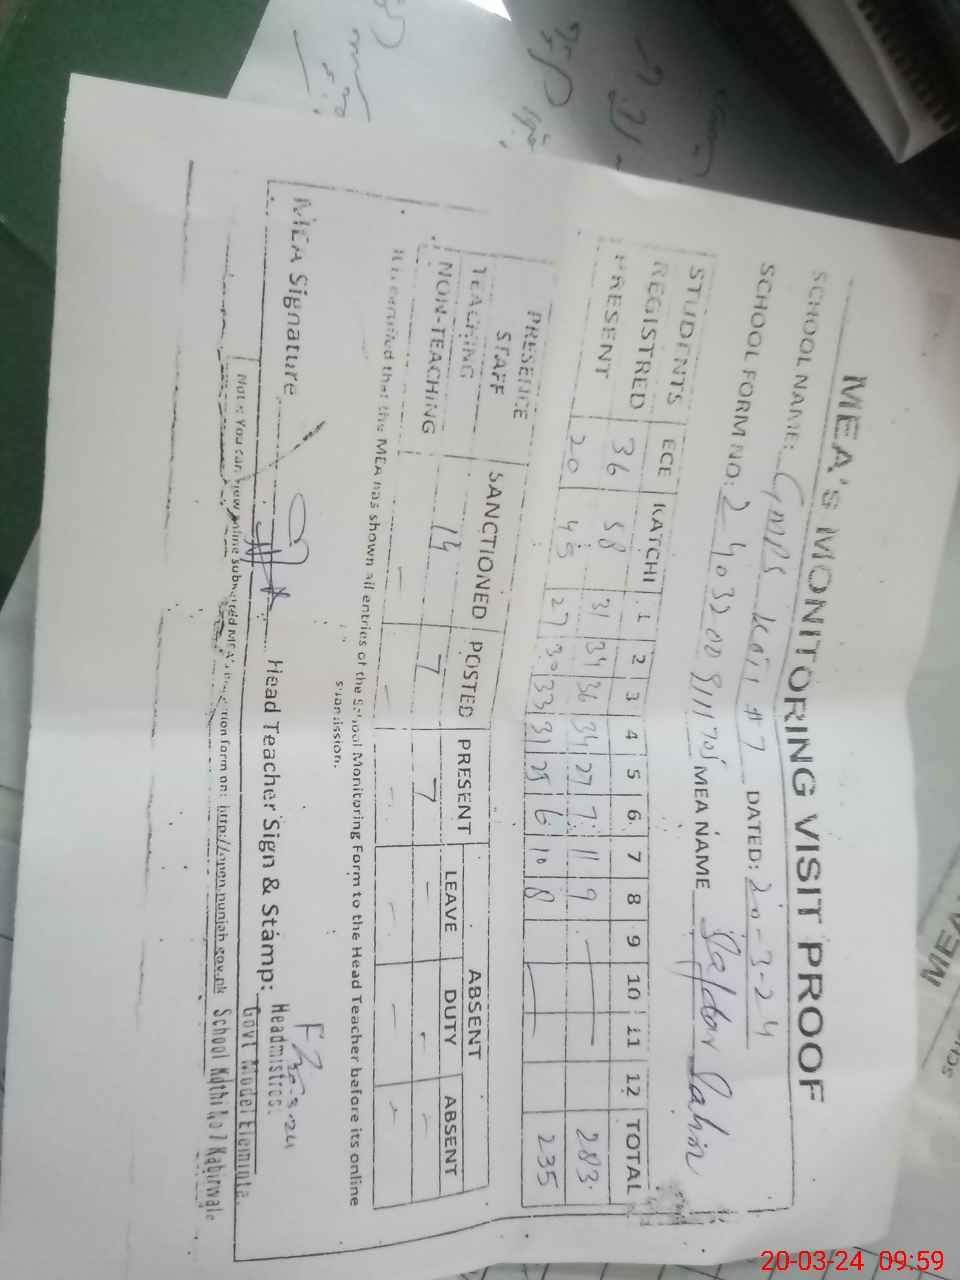 MEA'S MONITORING VISIT PROOF
SCHOOL NAME: GMPS Kothi #7 DATED: 20-3-24
SCHOOL FORM NO: MEA NAME
STUDENTS ECE KATCHI 1 2 3 4 5 6 7 8 9 10 11 12 TOTAL
REGISTRED 36 58 31 34 36 34 27 7 11 9 283
PRESENT 20 45 27 30 33 31 25 6 10 8 235
PRESENCE
STAFF SANCTIONED POSTED PRESENT ABSENT
LEAVE DUTY ABSENT
TEACHING 14 7 7 - - -
NON-TEACHING - - - - - -
It is certified that the MEA has shown all entries of the School Monitoring Form to the Head Teacher before its online
submission.
MEA Signature Head Teacher Sign & Stamp:
20-3-24
Headmistres:
Govt Model Elemnte
School Kothi No 7 Kabirwala
Note: You can view online submitted MEA's form on: http://open.punjab.gov.pk
MEA
20-03-24 09:59